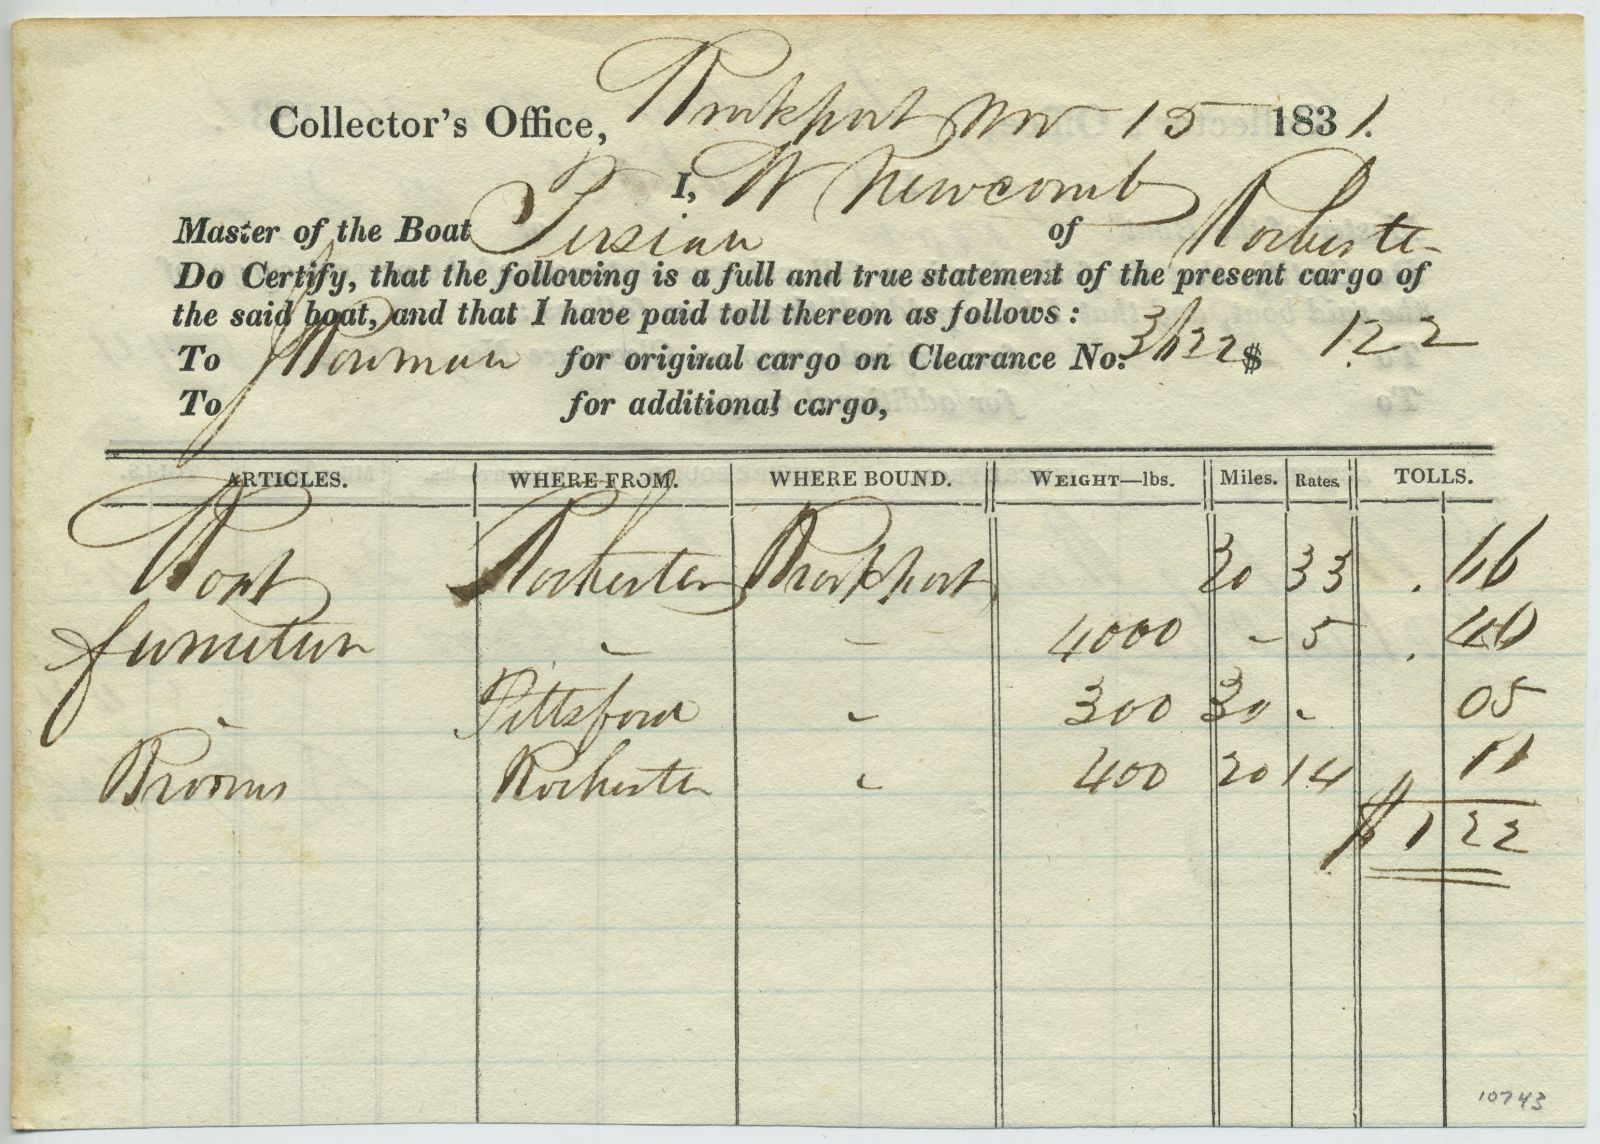 Collector's Office, Brockport Nov 15 1831.
I, W Newcomb
Master of the Boat Persian of Rochester
Do Certify, that the following is a full and true statement of the present cargo of
the said boat, and that I have paid toll thereon as follows:
To J Bowman for original cargo on Clearance No. 3122 $ 1.22
To for additional cargo,
ARTICLES. WHERE FROM. WHERE BOUND. WEIGHT—lbs. Miles. Rates. TOLLS.
Boat Rochester Brockport 20 33 . 66
furniture " " 4000 " 5 . 40
" Pittsford " 300 30 " 05
Brooms Rochester " 400 20 14 11
$ 1 22
10743